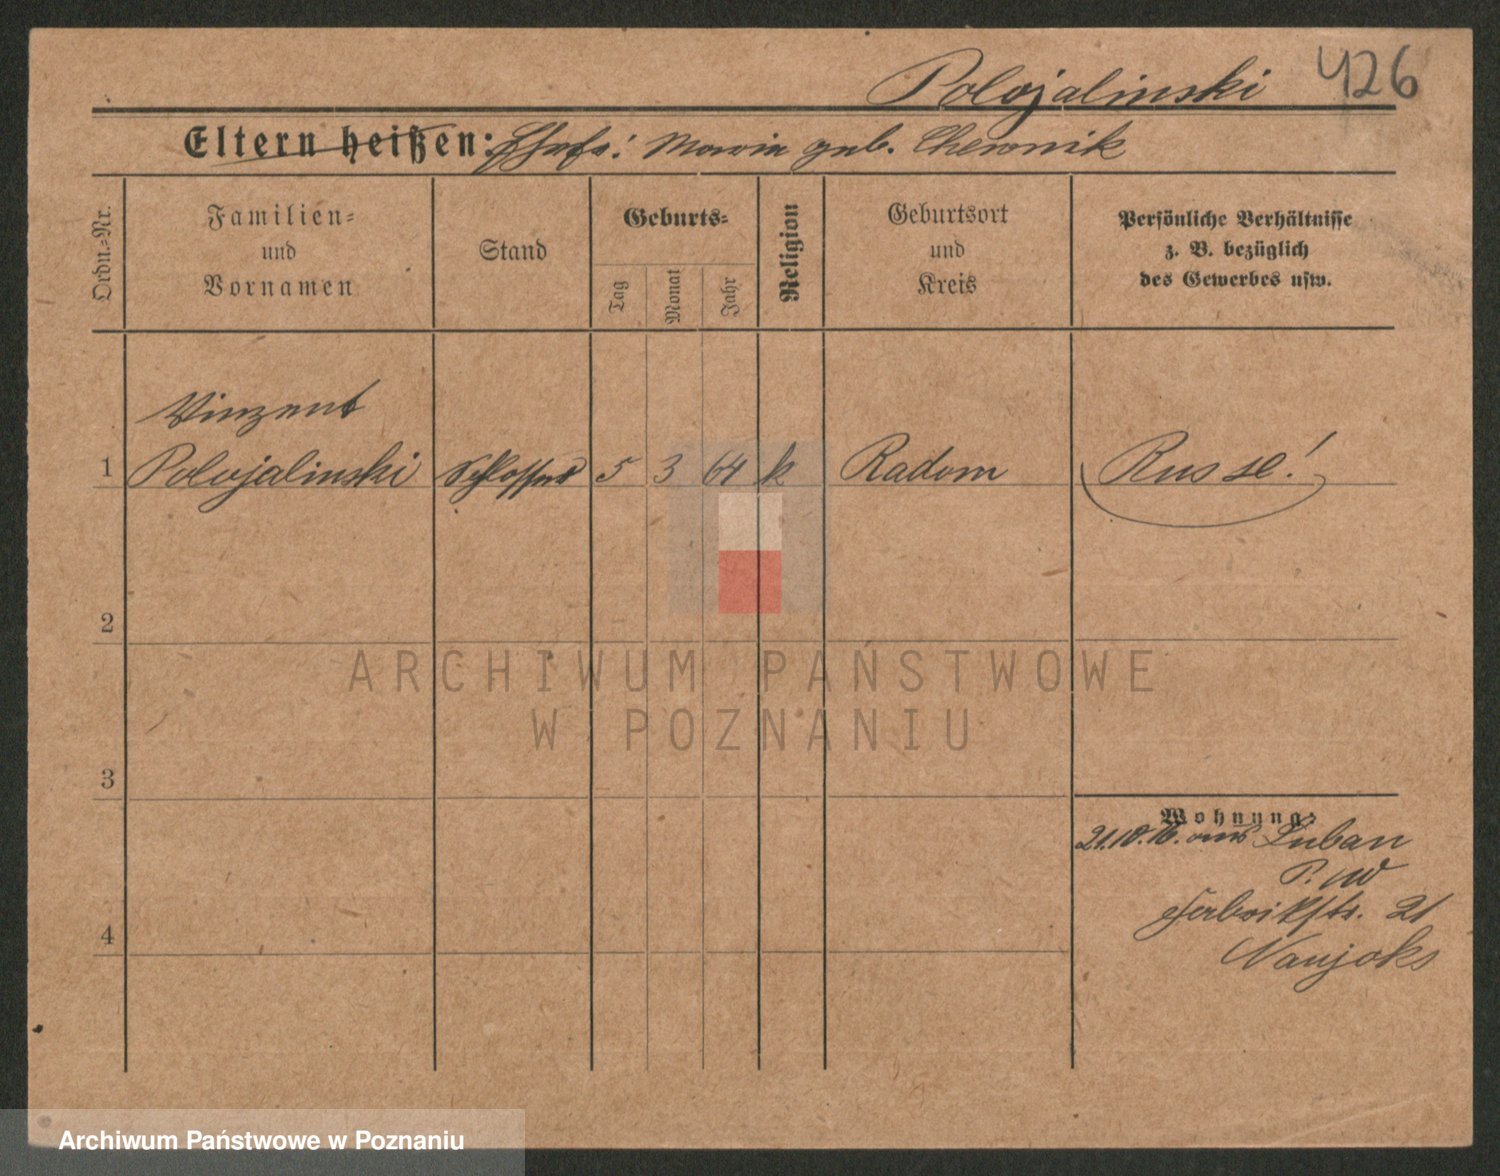 Polojalinski 426
Eltern heißen: Ehefr: Maria geb. Chewnik
Ordn.-Nr.
Familien-
und
Vornamen
Stand
Geburts-
Tag
Monat
Jahr
Religion
Geburtsort
und
Kreis
Persönliche Verhältnisse
z. B. bezüglich
des Gewerbes usw.
Vinzent
1 Polojalinski Schlosser 5 3 64 k Radom Russe!
2
ARCHIWUM PAŃSTWOWE
W POZNANIU
3
Wohnung:
21.10.16. aus Luban
P. W
21
4
Naujoks
Archiwum Państwowe w Poznaniu